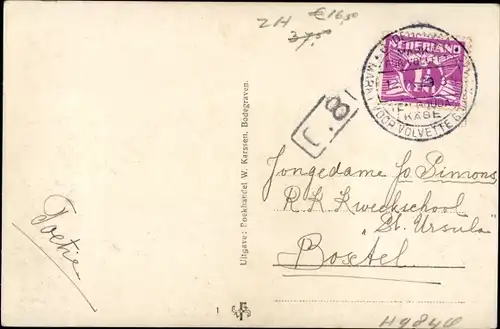 2H €16,50
37,50
NEDERLAND
1½
CENT
MARKT VOOR VOLVETTE
KAAS
C.8
Jongedame Jo Simons
R. K. Kweekschool
„St. Ursula"
Boxtel
Toetie
Uitgave: Boekhandel W. Karssen, Bodegraven.
1
H9840